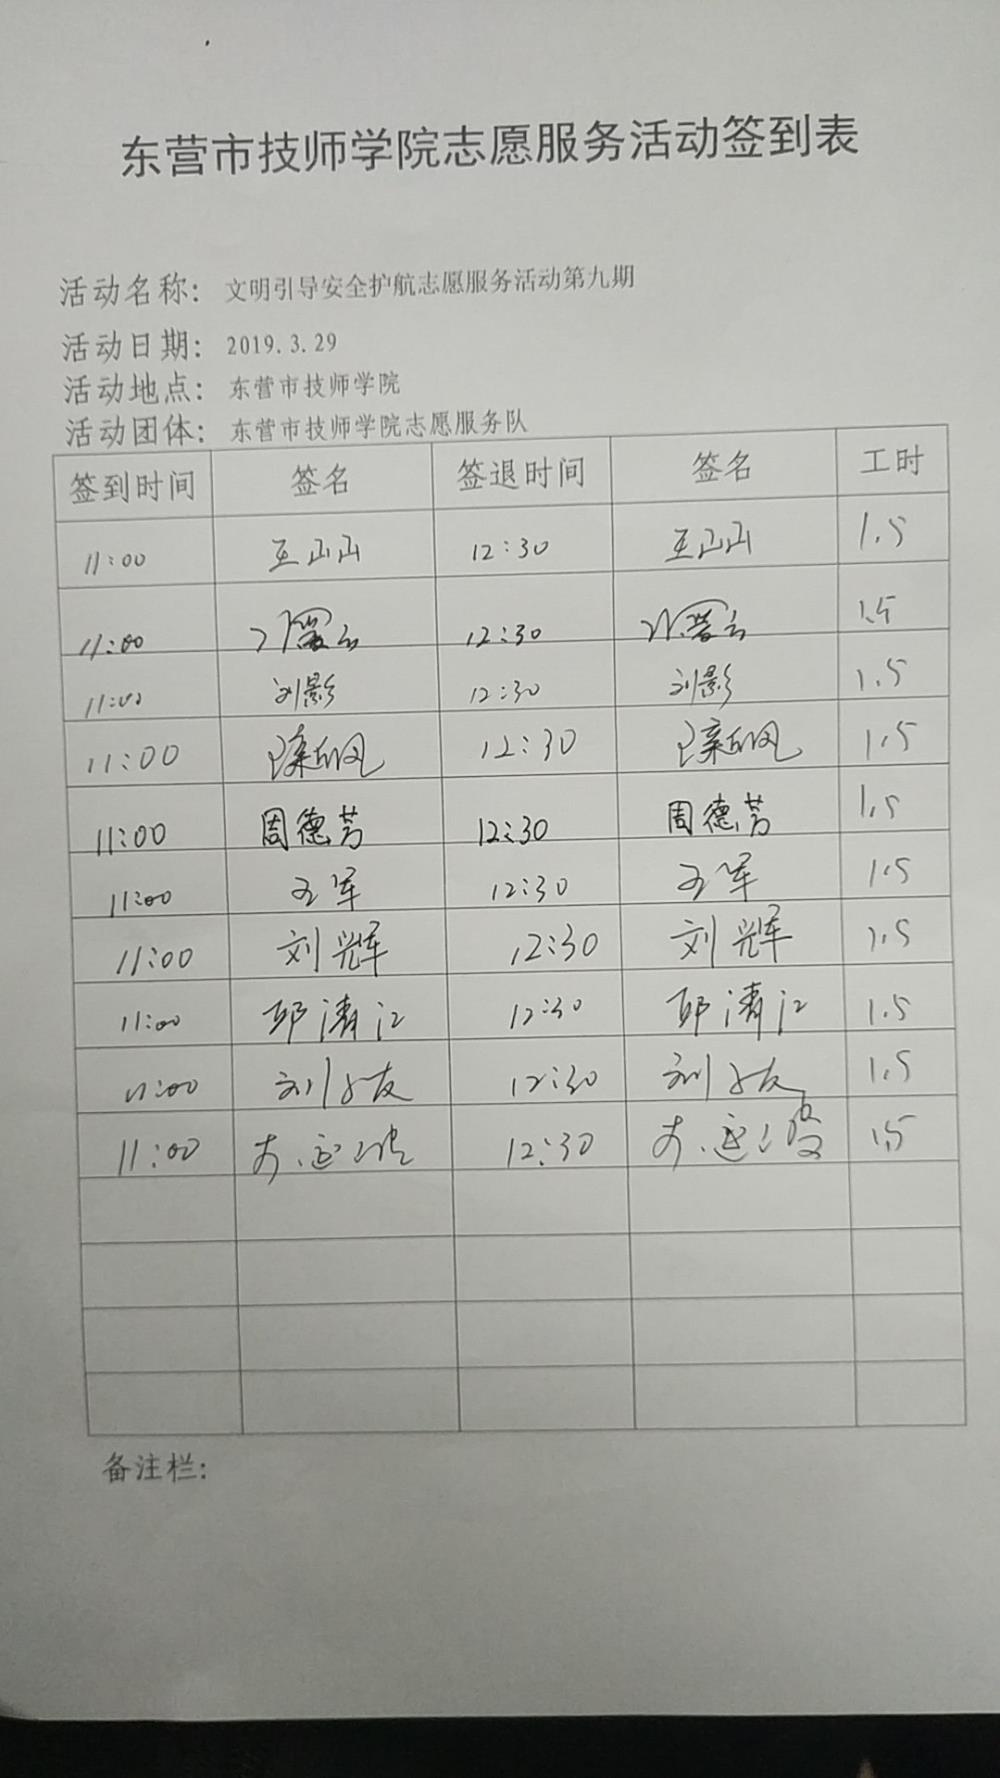 东营市技师学院志愿服务活动签到表
活动名称: 文明引导安全护航志愿服务活动第九期
活动日期: 2019.3.29
活动地点: 东营市技师学院
活动团体: 东营市技师学院志愿服务队
签到时间 签名 签退时间 签名 工时
11:00 王山山 12:30 王山山 1.5
11:00 12:30 1.5
11:00 刘影 12:30 刘影 1.5
11:00 12:30 1.5
11:00 周德芳 12:30 周德芳 1.5
11:00 王军 12:30 王军 1.5
11:00 刘辉 12:30 刘辉 1.5
11:00 邱清江 12:30 邱清江 1.5
11:00 刘 友 12:30 刘 友 1.5
11:00 12:30 1.5
备注栏: